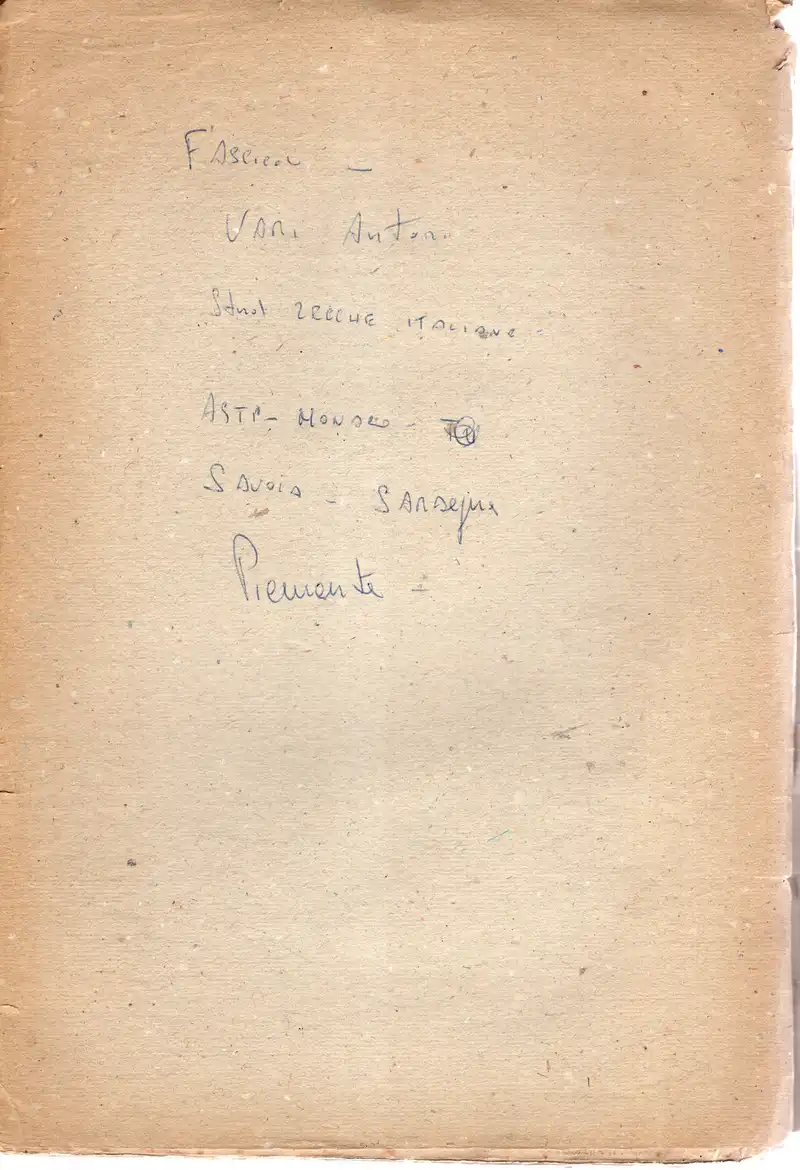 Fascicoli -
Vari Autori
Studi ZECCHE ITALIANE -
ASTI - MONACO -
SAVOIA - SARDEGNA
Piemonte -